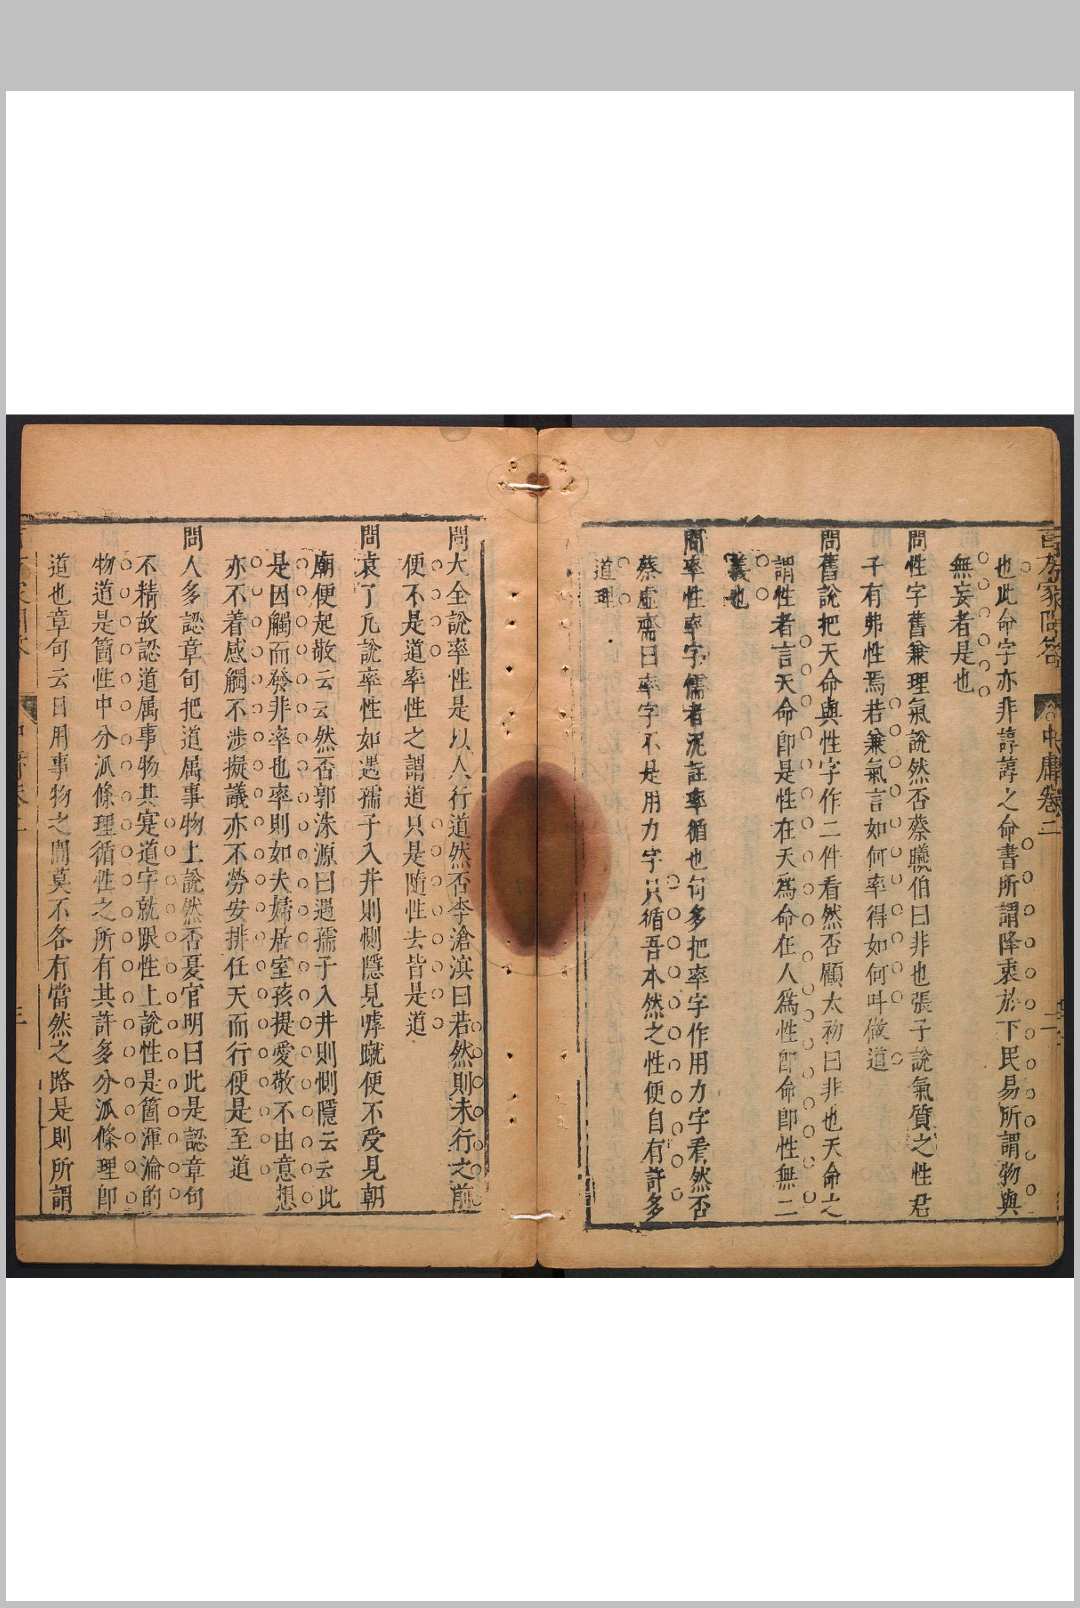 也此命字亦非諄諄之命書所謂降衷於下民易所謂物與
無妄者是也
問性字舊兼理氣說然否蔡曦伯曰非也張子說氣質之性君
子有弗性焉若兼氣言如何率得如何叫做道
問舊說把天命與性字作二件看然否顧太初曰非也天命之
謂性者言天命即是性在天爲命在人爲性即命即性無二
義也
問率性率字儒者泥註率循也句多把率字作用力字看然否
蔡虛齋曰率字不是用力字只循吾本然之性便自有許多
道理
中庸卷二
問大全說率性是以人行道然否李滄溟曰若然則未行之前
便不是道率性之謂道只是隨性去皆是道
問袁了凡說率性如遇孺子入井則惻隱見嘑蹴便不受見朝
廟便起敬云云然否郭洙源曰遇孺子入井則惻隱云云此
是因觸而發非率也率則如夫婦居室孩提愛敬不由意想
亦不着感觸不涉擬議亦不勞安排任天而行便是至道
問人多認章句把道属事物上說然否憂官明曰此是認章句
不精故認道属事物其寔道字就跟性上說性是箇渾淪的
物道是箇性中分派條理循性之所有其許多分派條理即
道也章句云日用事物之間莫不各有當然之路是則所謂
三